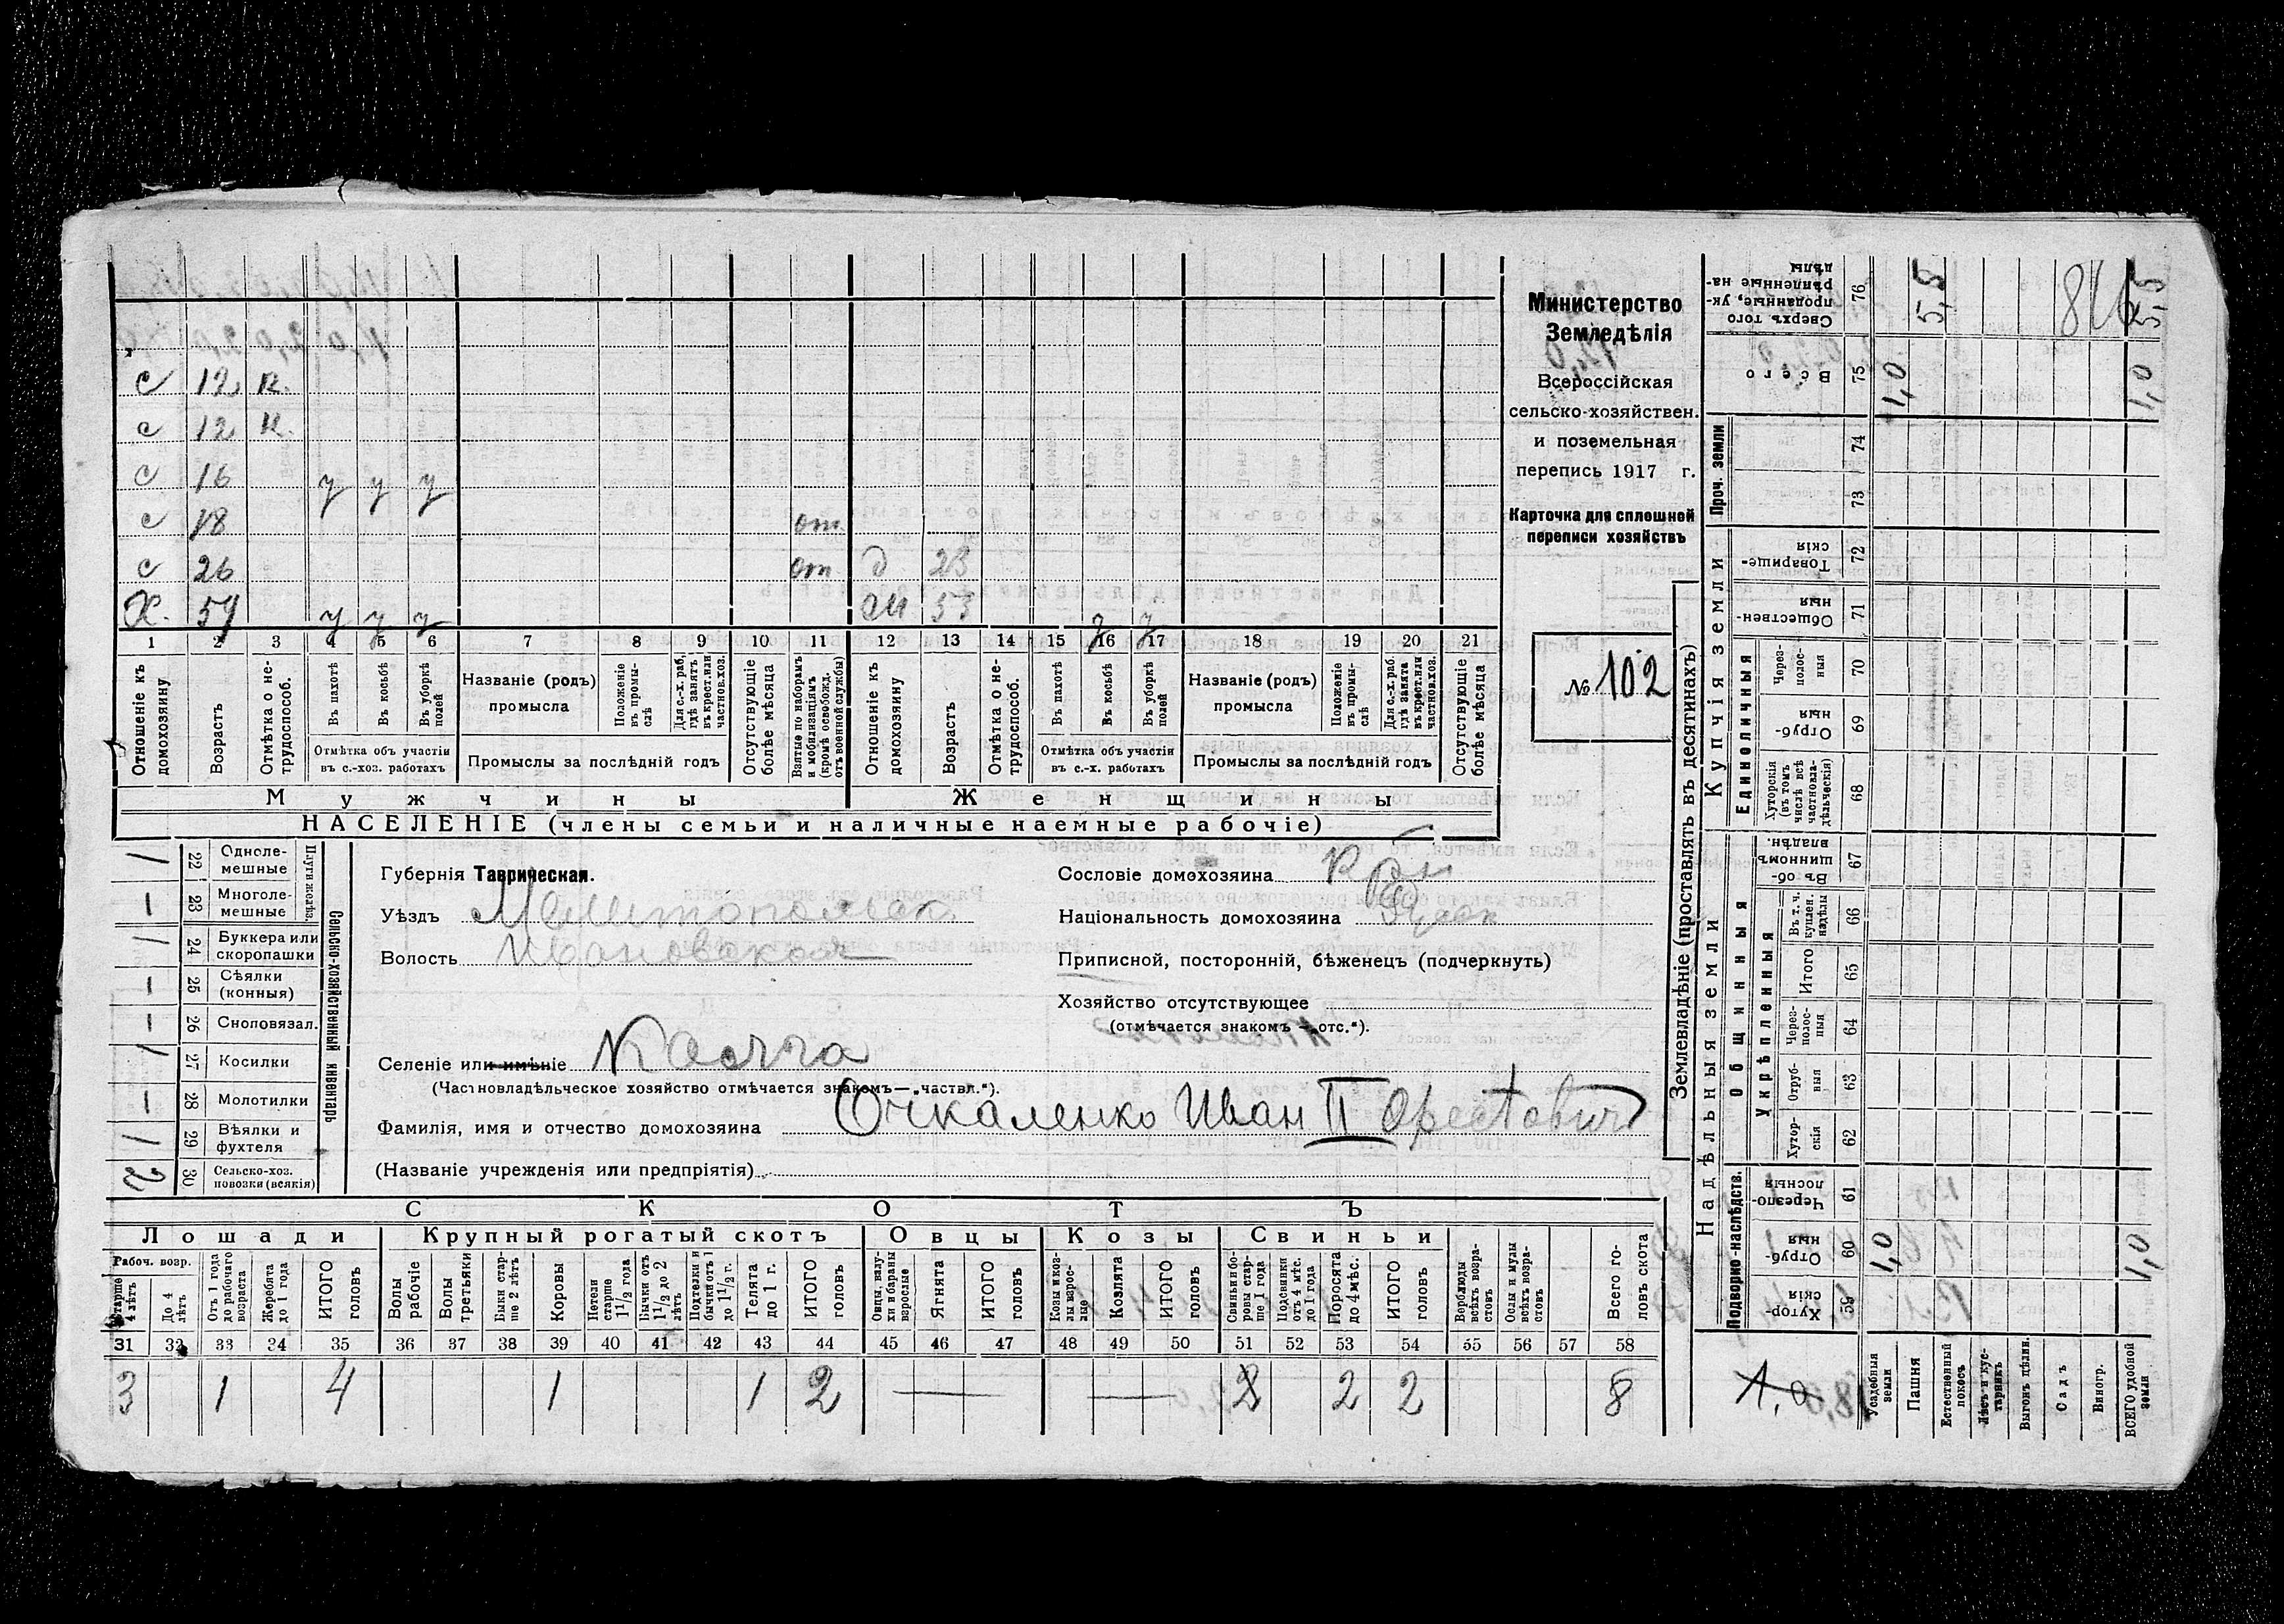 с 12 н.
с 12 н.
с 16 у у у
с 18 от.
с 26 от д 23
Х. 59 у у у 53 у у
1 2 3 4 5 6 7 8 9 10 11 12 13 14 15 16 17 18 19 20 21
Отношеніе къ домохозяину
Возрастъ
Отмѣтка о нетрудоспособ.
Въ пахотѣ
Въ косьбѣ
Въ уборкѣ полей
Отмѣтка объ участіи въ с.-хоз. работахъ
Названіе (родъ) промысла
Положеніе въ промыслѣ
Для с.-х. раб. гдѣ занятъ въ крест. или частнов. хоз.
Промыслы за послѣдній годъ
Отсутствующіе болѣе мѣсяца
Взятые по наборамъ и мобилизаціямъ (кромѣ освобожд. отъ военной службы)
Отношеніе къ домохозяину
Возрастъ
Отмѣтка о нетрудоспособ.
Въ пахотѣ
Въ косьбѣ
Въ уборкѣ полей
Отмѣтка объ участіи въ с.-х. работахъ
Названіе (родъ) промысла
Положеніе въ промыслѣ
Для с.-х. раб. гдѣ занята въ крест. или частнов. хоз.
Промыслы за послѣдній годъ
Отсутствующіе болѣе мѣсяца
Мужчины
Женщины
НАСЕЛЕНІЕ (члены семьи и наличные наемные рабочіе)
Министерство
Земледѣлія
Всероссійская
сельско-хозяйствен.
и поземельная
перепись 1917 г.
Карточка для сплошной
переписи хозяйствъ
№ 102
Сельско-хозяйственный инвентарь
Плуги желѣз.
22 Однолемешные
23 Многолемешные
24 Буккера или скоропашки
25 Сѣялки (конныя)
26 Сноповязал.
27 Косилки
28 Молотилки
29 Вѣялки и фухтеля
30 Сельско-хоз. повозки (всякія)
2
Губернія Таврическая.
Уѣздъ Мелитопольск.
Волость Ивановская
Селеніе или имѣніе
(Частновладѣльческое хозяйство отмѣчается знакомъ—„частвл.“).
Фамилія, имя и отчество домохозяина Очкаленко Иван II Орестович
(Названіе учрежденія или предпріятія)
Сословіе домохозяина
Національность домохозяина
Приписной, посторонній, бѣженецъ (подчеркнуть)
Хозяйство отсутствующее
(отмѣчается знакомъ —„отс.“).
СКОТЪ
Лошади
Крупный рогатый скотъ
Овцы
Козы
Свиньи
Рабоч. возр.
Старше 4 лѣтъ
До 4 лѣтъ
Отъ 1 года до рабочаго возраста
Жеребята до 1 года
ИТОГО головъ
Волы рабочіе
Волы третьяки
Быки старше 2 лѣтъ
Коровы
Нетели старше 1 1/2 года
Бычки отъ 1 1/2 до 2 лѣтъ
Подтелки и бычки отъ 1 до 1 1/2 г.
Телята до 1 г.
ИТОГО головъ
Овцы, валухи и бараны взрослые
Ягнята
ИТОГО головъ
Козы и козлы взрослые
Козлята
ИТОГО головъ
Свиньи и боровы старше 1 года
Подсвинки отъ 4 мѣс. до 1 года
Поросята до 4 мѣс.
ИТОГО головъ
Верблюды всѣхъ возрастовъ
Ослы и мулы всѣхъ возрастовъ
Всего головъ скота
31 32 33 34 35 36 37 38 39 40 41 42 43 44 45 46 47 48 49 50 51 52 53 54 55 56 57 58
3 1 4 1 1 2 — — 2 2 2 8
Землевладѣніе (проставлять въ десятинахъ)
Купчія земли
Надѣльныя земли
Сверхъ того проданные, укрѣпленные надѣлы 76
Всего 75
Проч. земли
74
73
Товарищескія 72
Общественныя 71
Единоличныя
Черезполосныя 70
Отрубныя 69
Хуторскія (въ томъ числѣ всѣ частновладѣльческія) 68
Общинныя
Въ общинномъ владѣн. 67
Укрѣпленныя
Въ т. ч. куплен. надѣлы 66
Итого 65
Черезполосныя 64
Отрубныя 63
Хуторскія 62
Подворно-наслѣдств.
Черезполосныя 61
Отрубныя 60
Хуторскія 59
5,5
5,5
1,0
1,0
1,0
1,0
1,0
Усадебныя земли
Пашня
Естественный покосъ
Лѣсъ и кустарникъ
Выгонъ дѣлин.
Садъ
Виногр.
ВСЕГО удобной земли